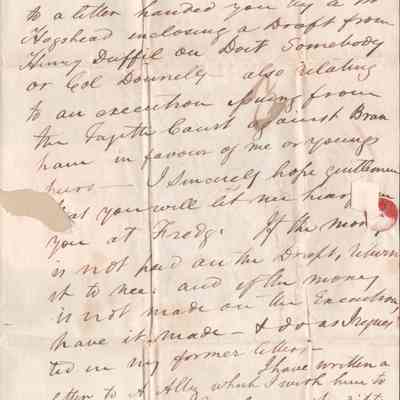 to a letter handed you by a Mr
Hogshead inclosing a Draft from
Henry Duffil on Doit Somebody
or Col Donnely also relating
to an execution issuing from
the Fayette Court against Bran
ham in favour of me or Youngs
heirs — I sincerely hope gentlemen
that you will let me hear
you at Fredg. If the mon
is not paid on the Draft, return
it to me. and if the money
is not made on the Execution,
have it made — & do as I reques
ted in my former letter; —
I have written a
letter to A Alley which I wish him to